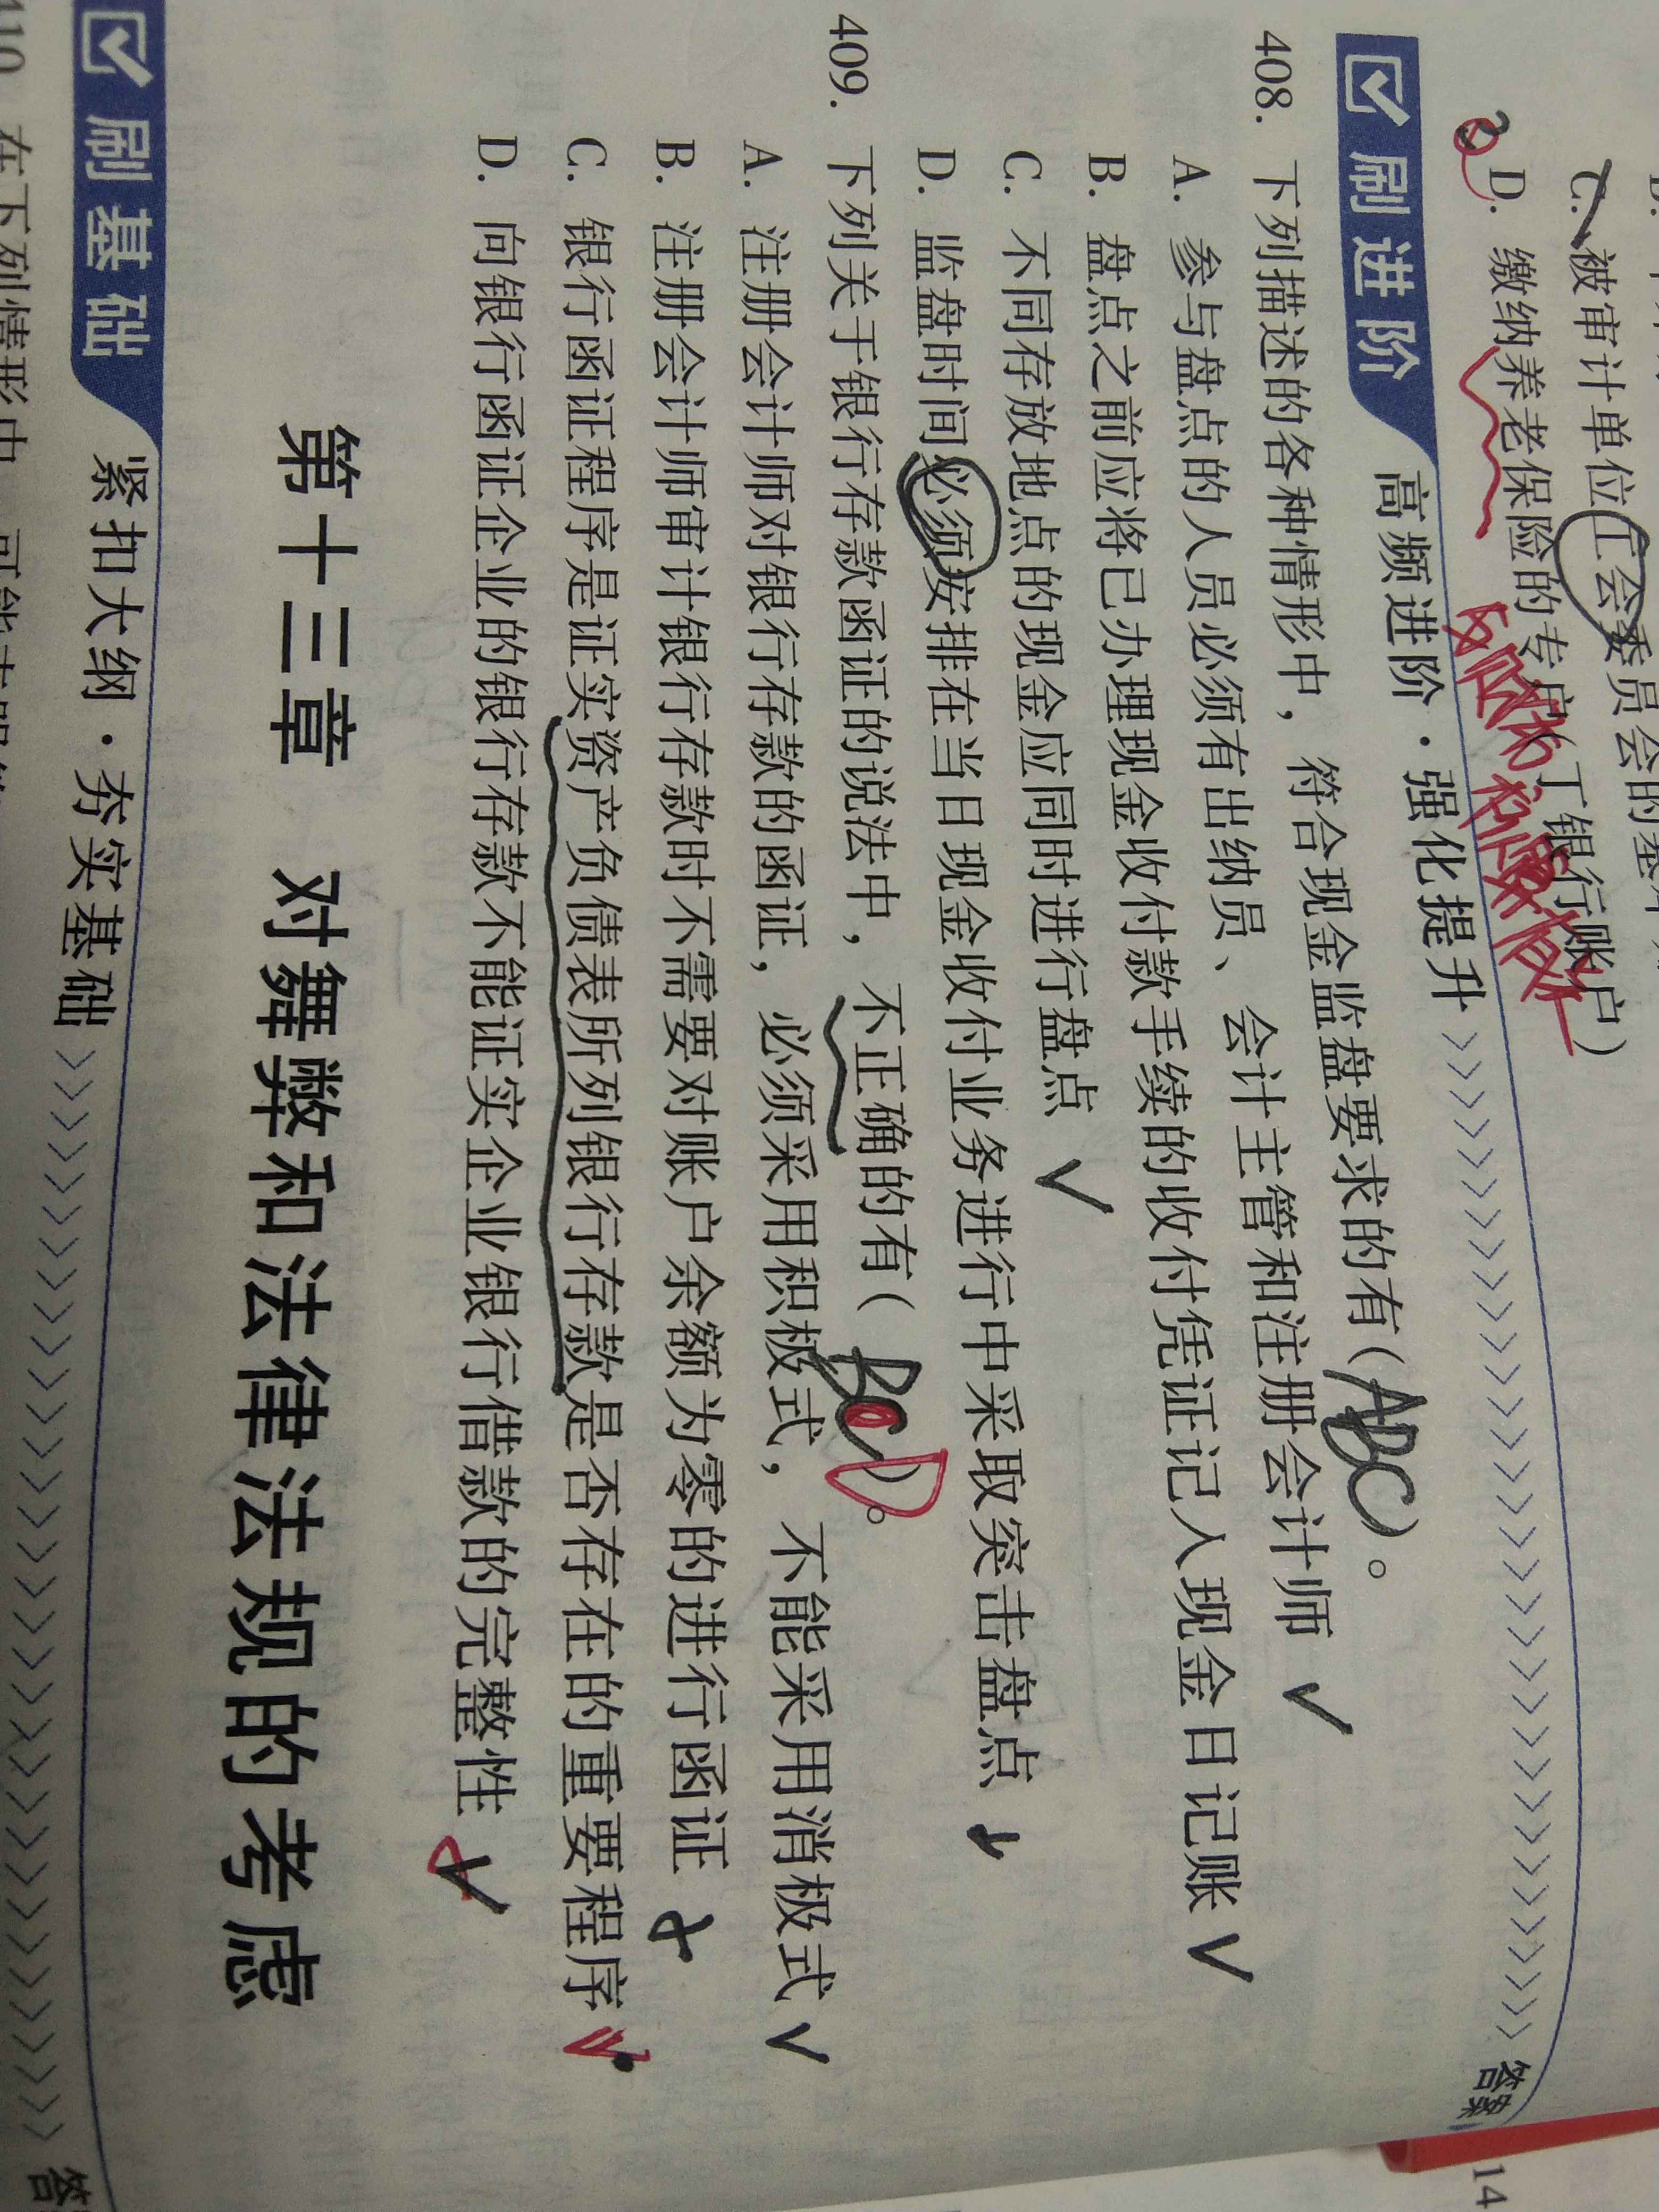 C. 被审计单位工会委员会的基本
D. 缴纳养老保险的专户(丁银行账户)
刷进阶 高频进阶·强化提升 答案
408. 下列描述的各种情形中，符合现金监盘要求的有(ABC)。
A. 参与盘点的人员必须有出纳员、会计主管和注册会计师 √
B. 盘点之前应将已办理现金收付款手续的收付凭证记入现金日记账 √
C. 不同存放地点的现金应同时进行盘点 √
D. 监盘时间必须安排在当日现金收付业务进行中采取突击盘点
409. 下列关于银行存款函证的说法中，不正确的有(BD)。
A. 注册会计师对银行存款的函证，必须采用积极式，不能采用消极式 √
B. 注册会计师审计银行存款时不需要对账户余额为零的进行函证 ×
C. 银行函证程序是证实资产负债表所列银行存款是否存在的重要程序
D. 向银行函证企业的银行存款不能证实企业银行借款的完整性
第十三章 对舞弊和法律法规的考虑
刷基础 紧扣大纲·夯实基础
410. 在下列情形中，可能
14